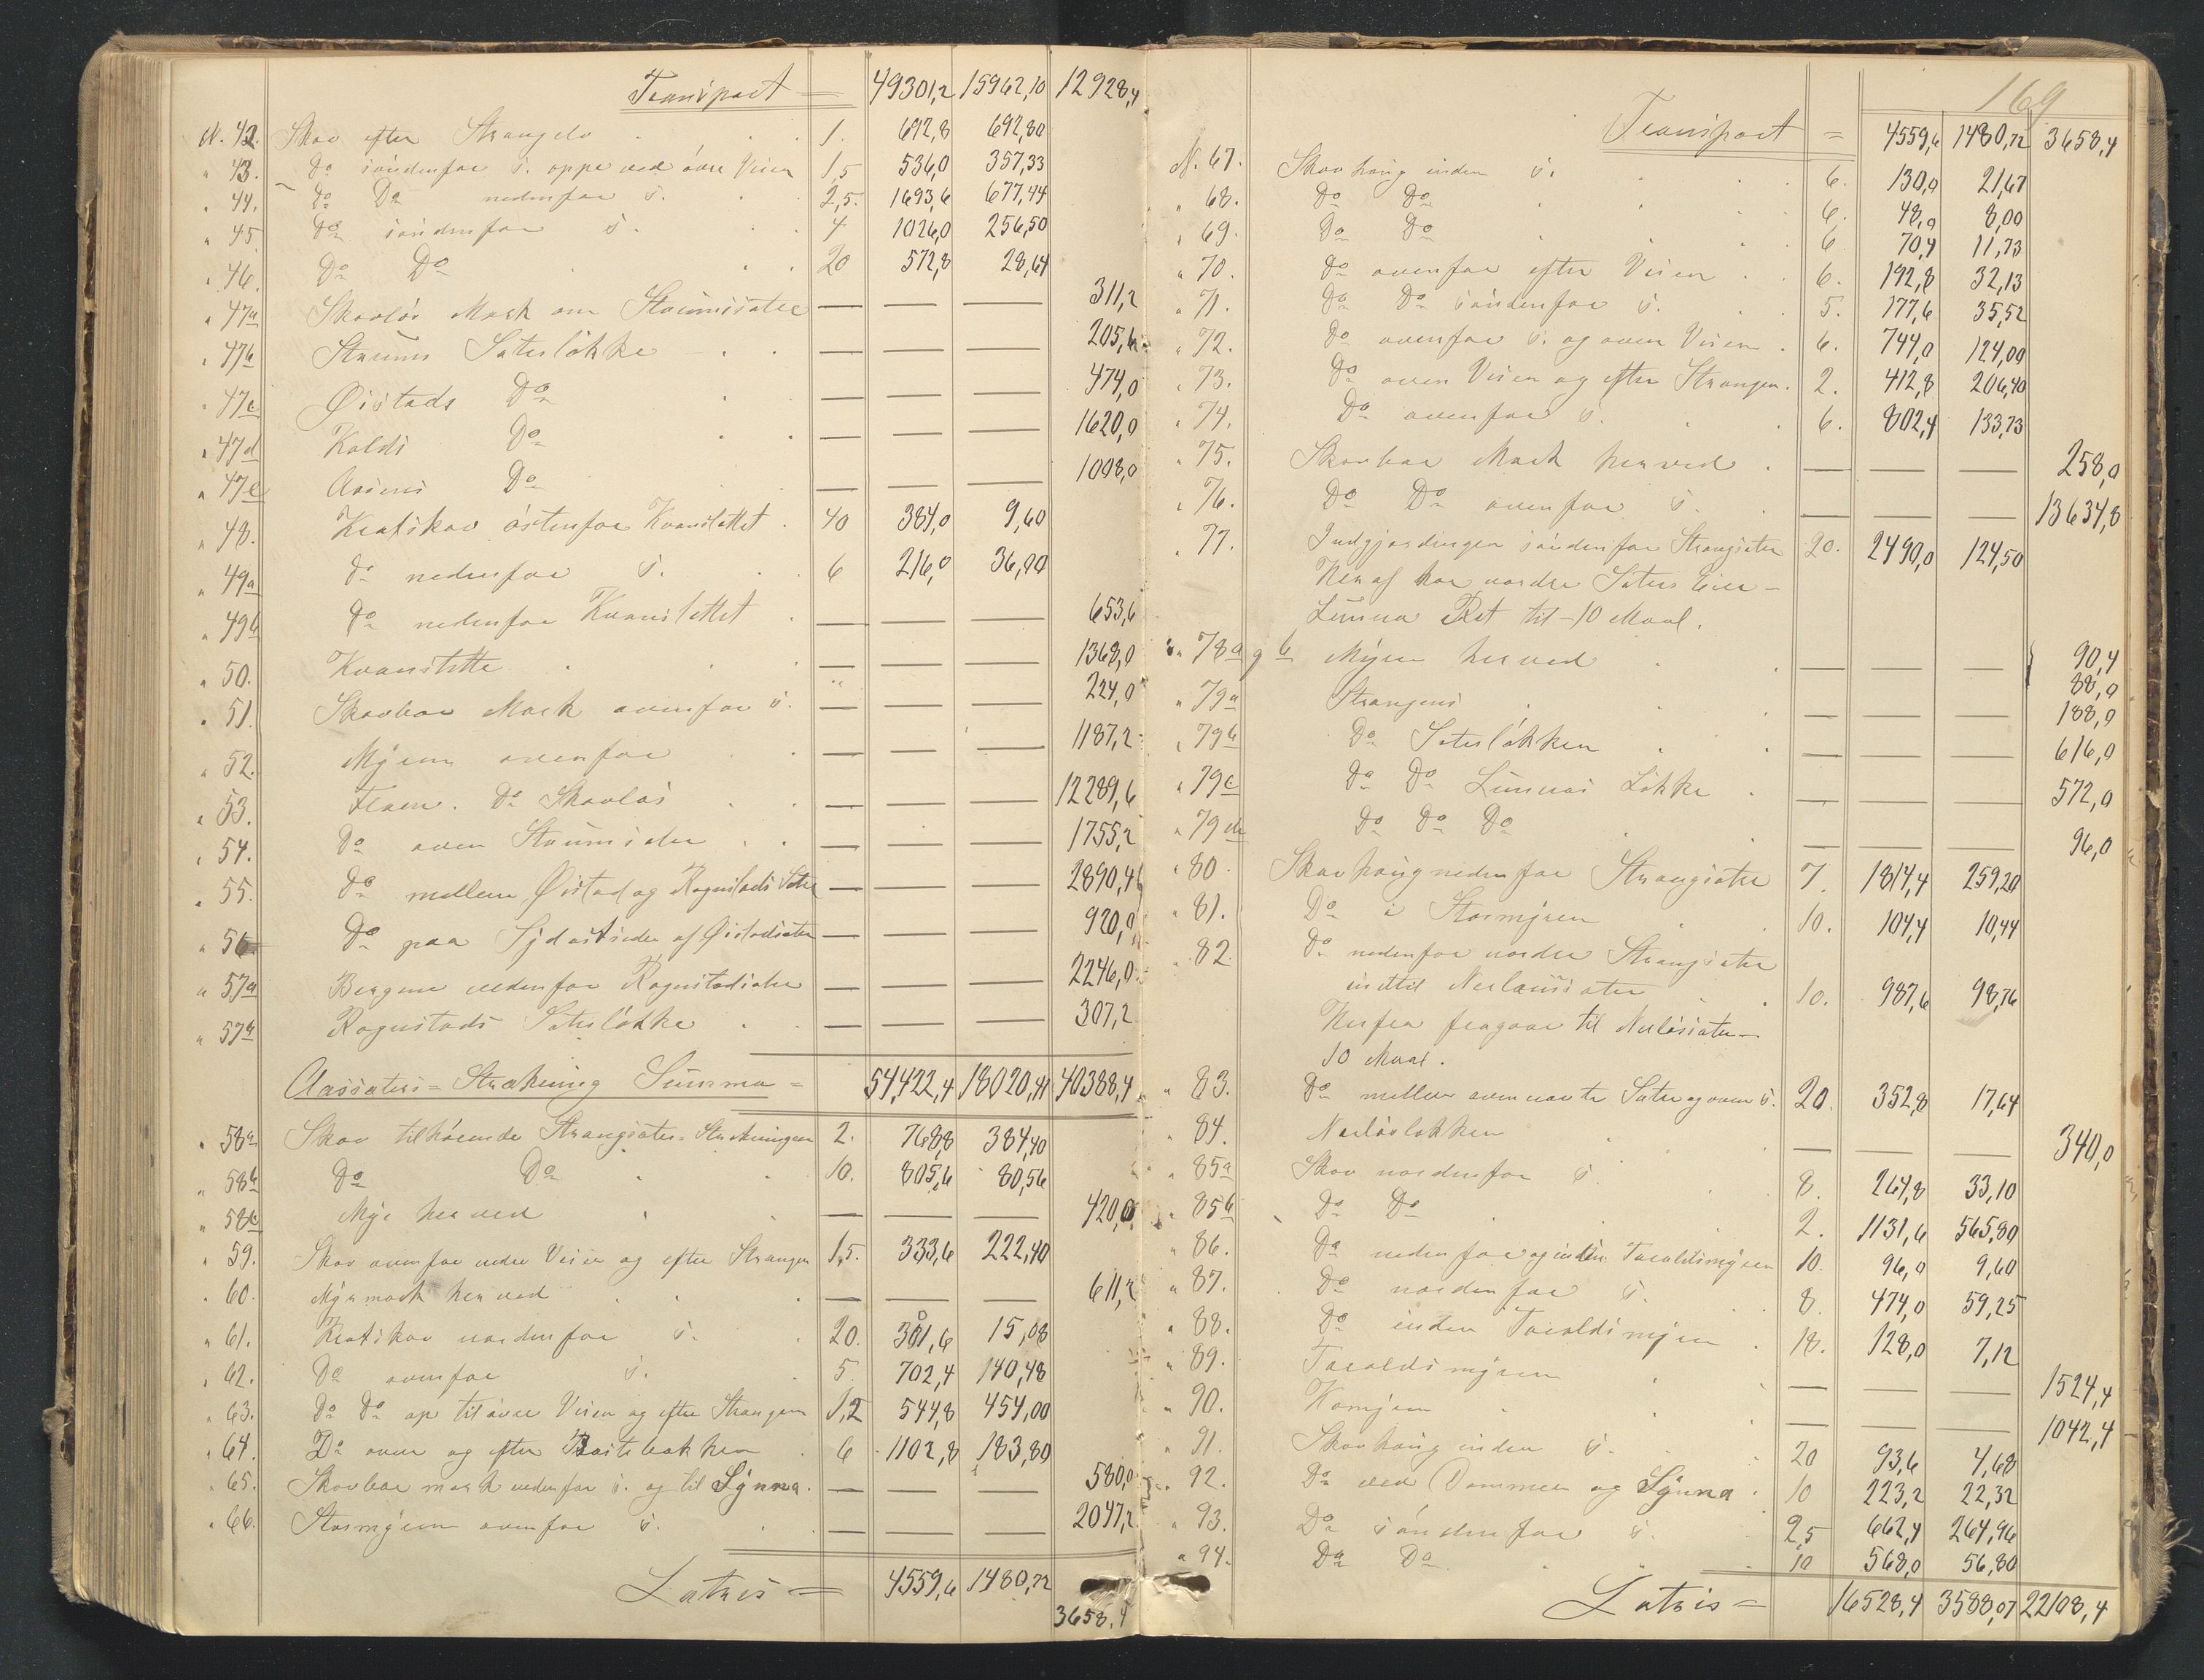 Transport = 49301,2 15962,10 12928,4
N. 42. Skov efter Strangelv 1. 692,8 692,80
" 43. Do söndenfor s. oppe ved övre Veien 1,5 536,0 357,33
" 44. Do Do nedenfor s. 2,5. 1693,6 677,44
" 45 Do söndenfor s. 4 1026,0 256,50
" 46. Do Do 20 572,8 28,64
" 47a Skovlös Mark om Staumsæter — — — 311,2
" 47b Stuums Sæterlökke — — — 205,6
" 47c Öistads Do — — — 474,0
" 47d Kolds Do — — — 1620,0
" 47e Aasens Do — — — 1008,0
" 48. Kratskov östenfor Kvanslettet 40 384,0 9,60
" 49a Do nedenfor s. 6 216,0 36,00
" 49b Do nedenfor Kvanslettet — — — 653,6
" 50. Kvanslette — — — 1368,0
" 51. Skovbar Mark ovenfor s. — — — 224,0
" 52. Myren ovenfor — — — 1187,2
" 53. Do Skovlös — — — 12289,6
" 54. Do oven — — — 1755,2
" 55. Do mellem Öistad og Rognstads Sæter — — — 2890,4
" 56 Do paa Sydostsiden af Öistadsæter — — — 920,0
" 57a Bergene nedenfor Rognstadsæter — — — 2246,0
" 57b Rognstads Sæterlökke — — — 307,2
Aassæters = Strækning Summa = 54,422,4 18020,41 40388,4
" 58a Skov tilhörende Strangsæters = Strækningen 2. 768,8 384,40
" 58b Do Do 10. 805,6 80,56
" 58c Myr herved — — — 420,0
" 59. Skov ovenfor nedre Veien og efter Strangen 1,5. 333,6 222,40
" 60. Myrmark herved — — — 611,2
" 61. Kratskov nordenfor s. 20. 301,6 15,08
" 62. Do ovenfor s. 5. 702,4 140,48
" 63. Do Do op til övre Veien og efter Strangen 1,2 544,8 454,00
" 64. Do over og efter 6 1102,8 183,80
" 65. Skovbar mark nedenfor s. og til Synna. — — — 580,0
" 66. Stormyren ovenfor s. — — — 2047,2
Latris = 4559,6 1480,72 3658,4
169
Transport = 4559,6 1480,72 3658,4
N. 67. Skovhaug inden s. 6. 130,0 21,67
" 68. Do Do 6. 48,0 8,00
" 69. Do Do 6 70,4 11,73
" 70. Do ovenfor efter Veien 6. 192,8 32,13
" 71. Do Do söndenfor s. 5. 177,6 35,52
" 72. Do ovenfor s. og oven Veien 6. 744,0 124,00
" 73. Do oven Veien og efter Strangen. 2. 412,8 206,40
" 74. Do ovenfor s. 6. 802,4 133,73
" 75. Skovbar Mark herved — — — 258,0
" 76. Do Do ovenfor s. — — — 13634,8
" 77. Indgjærdingen söndenfor Strangsæter 20. 2490,0 124,50
Heraf har nordre Sæters Eier -
Lunna Ret til - 10 Maal.
" 78a g b Myren herved — — — 90,4
88,0
" 79a Strangens — — — 188,0
" 79b Do Sæterlökken — — — 616,0
" 79c Do Do Lunnas Lökke — — — 572,0
" 79d Do Do Do — — — 96,0
" 80. Skovhaug nedenfor Strangsæter 7. 1814,4 259,20
" 81. Do i Stormyren 10. 104,4 10,44
" 82. Do nedenfor nordre Strangsæter
indtil Nerlaussæter 10. 987,6 98,76
Herfra fragaar til Nerlössæter —
10 Maal.
" 83. Do mellem ovennævnte Sæter og oven s. 20. 352,8 17,64
" 84. Nerlöslökken — — — 340,0
" 85a Skov nordenfor s. 8. 264,8 33,10
" 85b Do Do 2. 1131,6 565,80
" 86. Do nedenfor og inden Toraldsmyren 10. 96,0 9,60
" 87. Do nordenfor s. 8. 474,0 59,25
" 88. Do inden Toraldsmyren 18. 128,0 7,12
" 89. Toraldsmyren — — — 1524,4
" 90. — — — 1042,4
" 91. Skovhaug inden s. 20 93,6 4,68
" 92. Do ved Dammen og Synna 10 223,2 22,32
" 93. Do söndenfor s. 2,5 662,4 264,96
" 94. Do Do 10 568,0 56,80
Latris = 16528,4 3588,07 22108,4